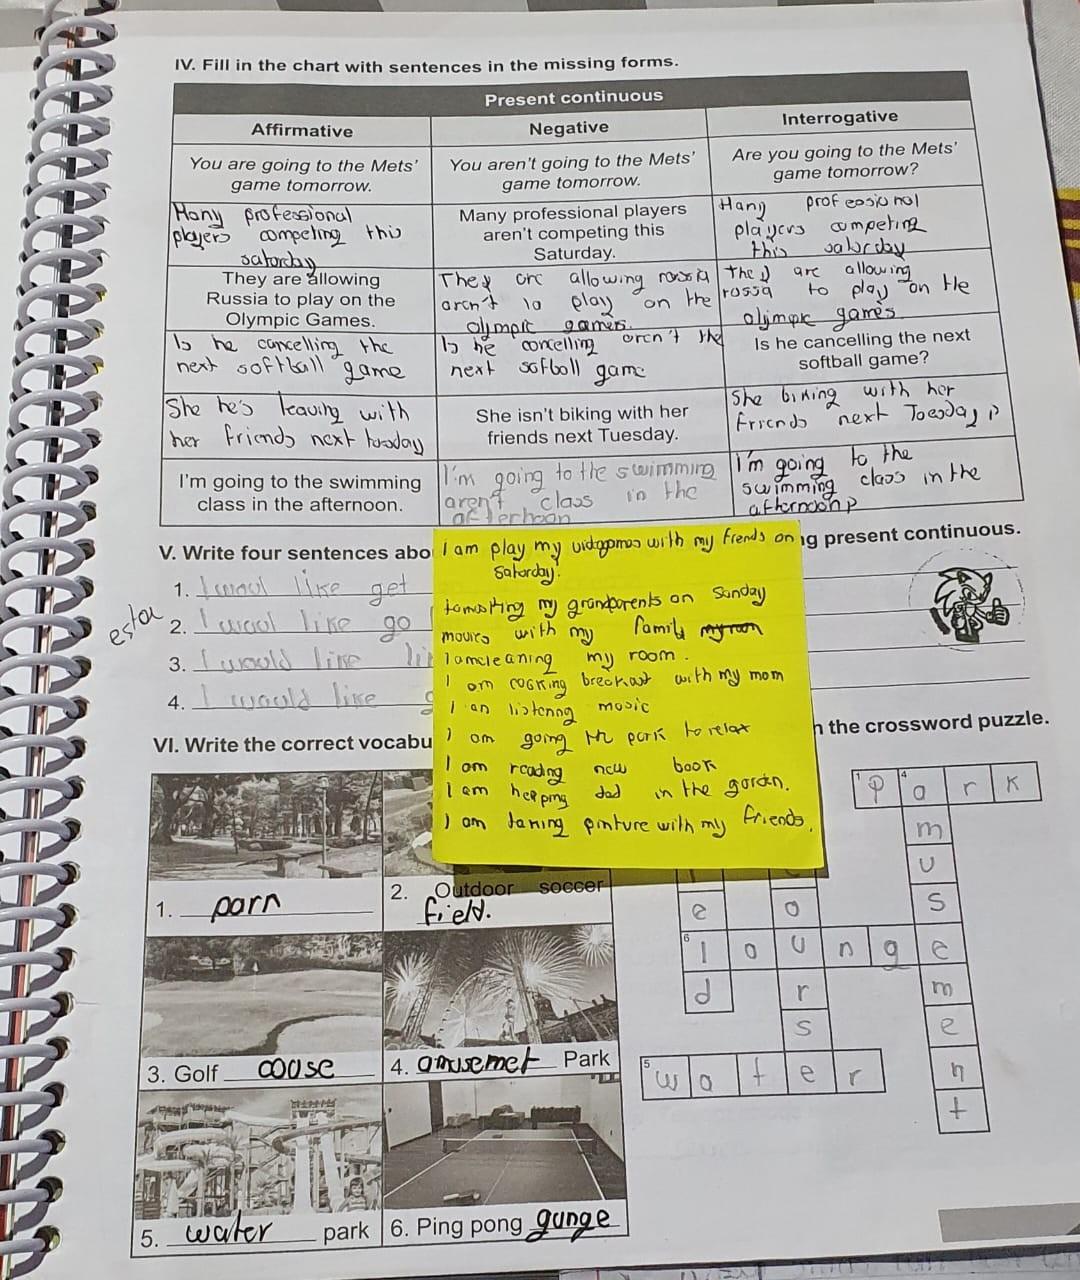 IV. Fill in the chart with sentences in the missing forms.
Present continuous
Affirmative
Negative
Interrogative
You are going to the Mets'
game tomorrow.
You aren't going to the Mets'
game tomorrow.
Are you going to the Mets'
game tomorrow?
Many professional
players competing this
saturday
Many professional players
aren't competing this
Saturday.
Many professional
players competing
this saturday
They are allowing
Russia to play on the
Olympic Games.
They are allowing russia
aren't to play on the
olympic gamers.
They are allowing
russa to play on the
olimpic games
Is he cancelling the
next softball game
Is he concelling aren't the
next sofboll game
Is he cancelling the next
softball game?
She he's leaving with
her friends next tusday
She isn't biking with her
friends next Tuesday.
She biking with her
friends next Toesday?
I'm going to the swimming
class in the afternoon.
I'm going to the swimming
aren't class in the
afternoon
I'm going to the
swimming class in the
afternoon?
V. Write four sentences abo
ng present continuous.
1. I woul like get
estar
2. I wool like go
3. I would like
4. I would like
I am play my vidogomes with my friends on
Saturday.
my grandparents on Sunday
movies with my family my room
I amcleaning my room.
I am cooking breckast with my mom
I an listenng mosic
I am going the park to relax
I am reading new book
I am helping dad in the gordn.
I am taking pinture with my friends.
VI. Write the correct vocabu
n the crossword puzzle.
1. parn
2. Outdoor soccer
field.
3. Golf couse
4. amusemet Park
5. water park
6. Ping pong gunge
1 p 4 a r k
m
u
s
e o e
6 l o u n g e
d r m
s e
5 w a t e r n
t